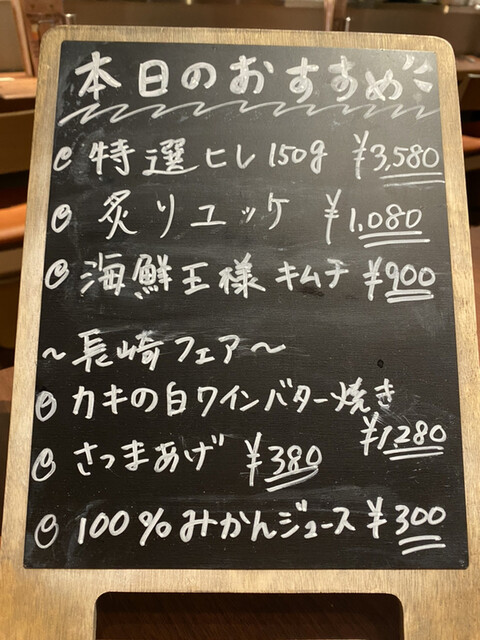 本日のおすすめ
特選ヒレ150g ¥3,580
炙りユッケ ¥1,080
海鮮王様キムチ ¥900
～長崎フェア～
カキの白ワインバター焼き
¥1,280
さつまあげ ¥380
100%みかんジュース ¥300